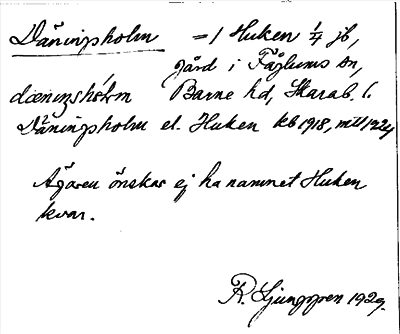 Däningsholm = 1 Huken 1/4 jb,
gård i Fåglums sn,
dæniŋshɔlm Barne hd, Skarab. l.
Däningsholm el. Huken kb 1918, mtl 1924
Ägaren önskar ej ha namnet Huken
kvar.
R. Ljunggren 1929.